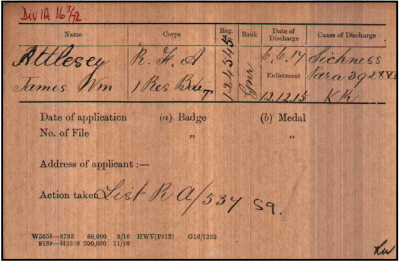 Div 1A 16 3/72
Name Corps Reg. No. Rank Date of Discharge Cause of Discharge
Attlesey R. F. A 124545 Gnr 6.6.17 Sickness
Enlistment Para 392 XVI
James Wm 1 Res Bde 12.12.15 K R
Date of application (a) Badge (b) Medal
No. of File „ „
Address of applicant :—
Action taken List R A/537 Sq.
W5658—8733 60,000 8/16 HWV(P913) G16/1202
200,000 11/16